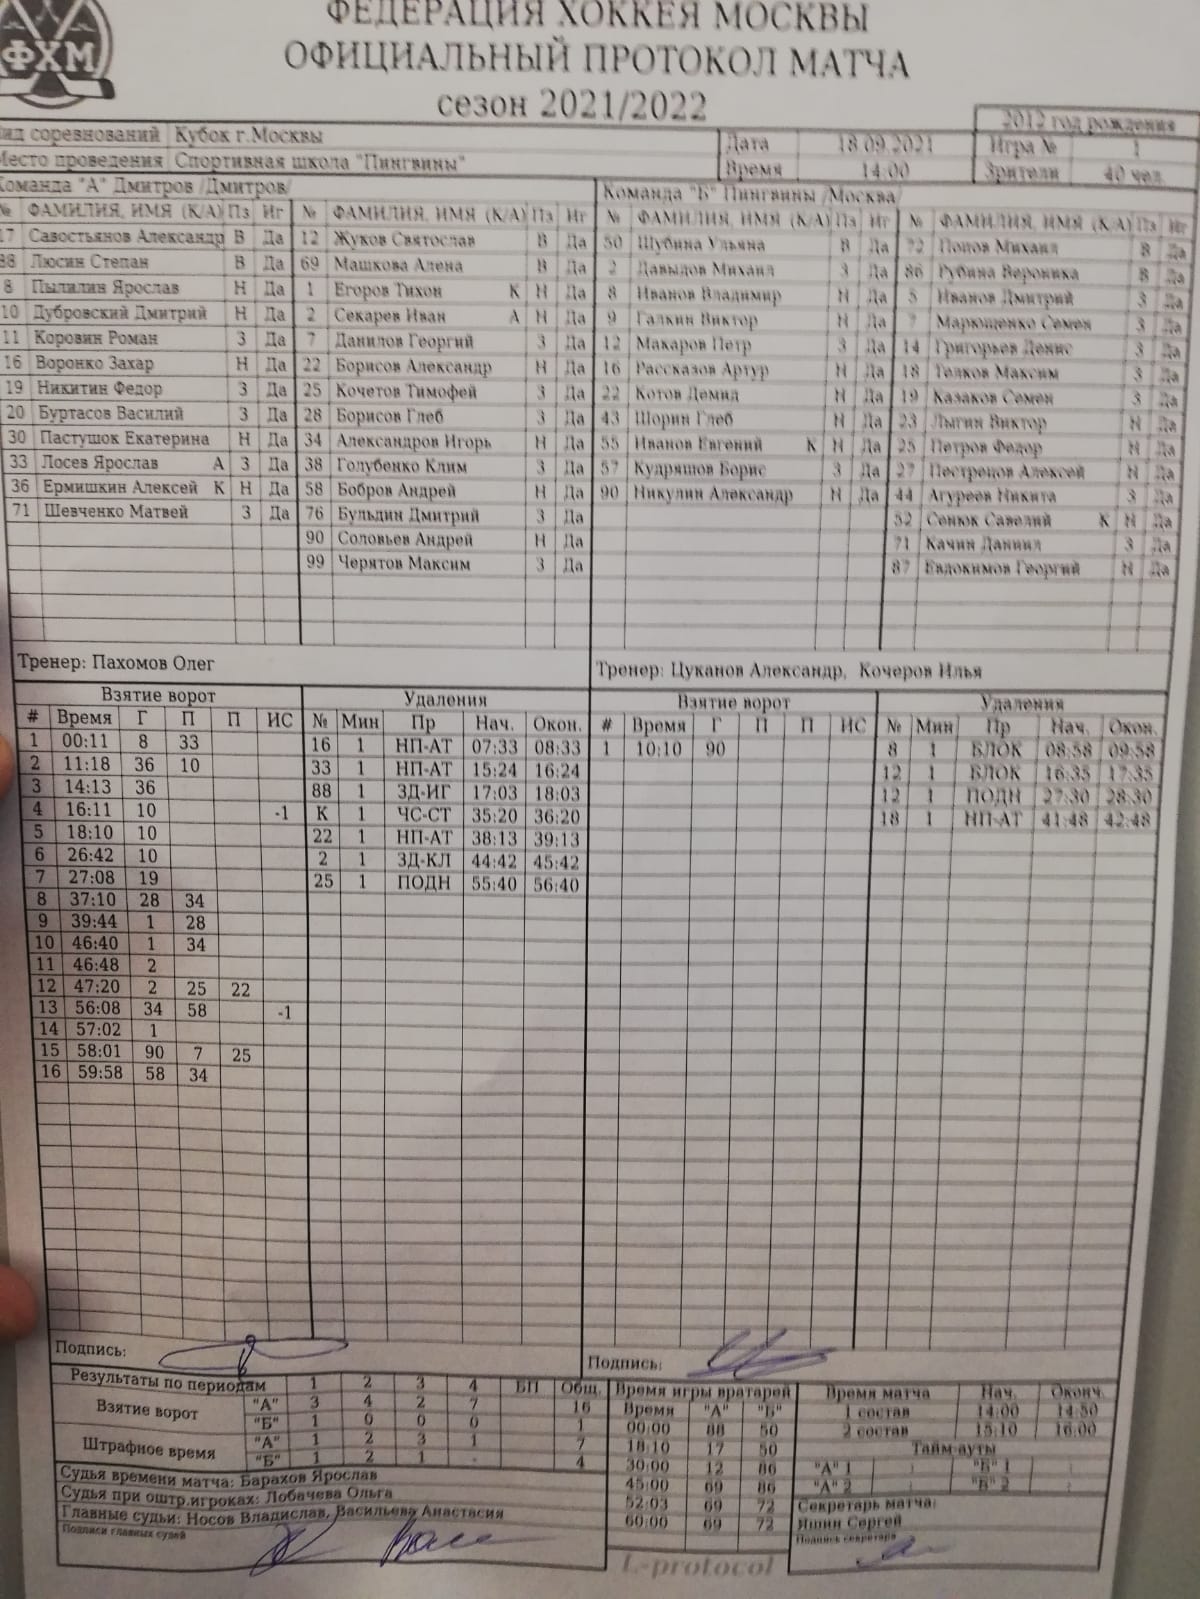 ФЕДЕРАЦИЯ ХОККЕЯ МОСКВЫ
ФХМ
ОФИЦИАЛЬНЫЙ ПРОТОКОЛ МАТЧА
сезон 2021/2022
2012 год рождения
соревнований Кубок г.Москвы Дата 18.09.2021 Игра № 1
Место проведения Спортивная школа "Пингвины" Время 14:00 Зрители 40 чел.
Команда "А" Дмитров /Дмитров/ Команда "Б" Пингвины /Москва/
№ ФАМИЛИЯ, ИМЯ (К/А) Пз Иг № ФАМИЛИЯ, ИМЯ (К/А) Пз Иг № ФАМИЛИЯ, ИМЯ (К/А) Пз Иг № ФАМИЛИЯ, ИМЯ (К/А) Пз Иг
17 Савостьянов Александр В Да 12 Жуков Святослав В Да 50 Шубина Ульяна В Да 72 Попов Михаил В Да
88 Люсин Степан В Да 69 Машкова Алена В Да 2 Давыдов Михаил З Да 86 Рубина Вероника В Да
8 Пылилин Ярослав Н Да 1 Егоров Тихон К Н Да 8 Иванов Владимир Н Да 5 Иванов Дмитрий З Да
10 Дубровский Дмитрий Н Да 2 Секарев Иван А Н Да 9 Галкин Виктор Н Да 7 Марющенко Семен З Да
11 Коровин Роман З Да 7 Данилов Георгий З Да 12 Макаров Петр З Да 14 Григорьев Денис З Да
16 Воронко Захар Н Да 22 Борисов Александр Н Да 16 Рассказов Артур Н Да 18 Толков Максим З Да
19 Никитин Федор З Да 25 Кочетов Тимофей З Да 22 Котов Демид Н Да 19 Казаков Семен З Да
20 Буртасов Василий З Да 28 Борисов Глеб З Да 43 Шорин Глеб Н Да 23 Лыгин Виктор Н Да
30 Пастушок Екатерина Н Да 34 Александров Игорь Н Да 55 Иванов Евгений К Н Да 25 Петров Федор Н Да
33 Лосев Ярослав А З Да 38 Голубенко Клим З Да 57 Кудряшов Борис З Да 27 Пестрецов Алексей Н Да
36 Ермишкин Алексей К Н Да 58 Бобров Андрей Н Да 90 Никулин Александр Н Да 44 Агуреев Никита З Да
71 Шевченко Матвей З Да 76 Бульдин Дмитрий З Да 52 Сенюк Савелий К Н Да
90 Соловьев Андрей Н Да 71 Качин Даниил З Да
99 Черятов Максим З Да 87 Евдокимов Георгий Н Да
Тренер: Пахомов Олег Тренер: Цуканов Александр, Кочеров Илья
Взятие ворот Удаления Взятие ворот Удаления
# Время Г П П ИС № Мин Пр Нач. Окон. # Время Г П П ИС № Мин Пр Нач. Окон.
1 00:11 8 33 16 1 НП-АТ 07:33 08:33 1 10:10 90 8 1 БЛОК 08:58 09:58
2 11:18 36 10 33 1 НП-АТ 15:24 16:24 12 1 БЛОК 16:35 17:35
3 14:13 36 88 1 ЗД-ИГ 17:03 18:03 12 1 ПОДН 27:30 28:30
4 16:11 10 -1 К 1 ЧС-СТ 35:20 36:20 18 1 НП-АТ 41:48 42:48
5 18:10 10 22 1 НП-АТ 38:13 39:13
6 26:42 10 2 1 ЗД-КЛ 44:42 45:42
7 27:08 19 25 1 ПОДН 55:40 56:40
8 37:10 28 34
9 39:44 1 28
10 46:40 1 34
11 46:48 2
12 47:20 2 25 22
13 56:08 34 58 -1
14 57:02 1
15 58:01 90 7 25
16 59:58 58 34
Подпись: Подпись:
Результаты по периодам 1 2 3 4 БП Общ. Время игры вратарей Время матча Нач. Оконч.
Взятие ворот "А" 3 4 2 7 16 Время "А" "Б" 1 состав 14:00 14:50
"Б" 1 0 0 0 1 00:00 88 50 2 состав 15:10 16:00
Штрафное время "А" 1 2 3 1 7 18:10 17 50 Тайм-ауты
"Б" 1 2 1 - 4 30:00 12 86 "А" 1 : "Б" 1 :
Судья времени матча: Барахов Ярослав 45:00 69 86 "А" 2 : "Б" 2 :
Судья при оштр.игроках: Лобачева Ольга 52:03 69 72 Секретарь матча:
Главные судьи: Носов Владислав, Васильева Анастасия 60:00 69 72 Яшин Сергей
Подписи главных судей Подпись секретаря
L-protocol